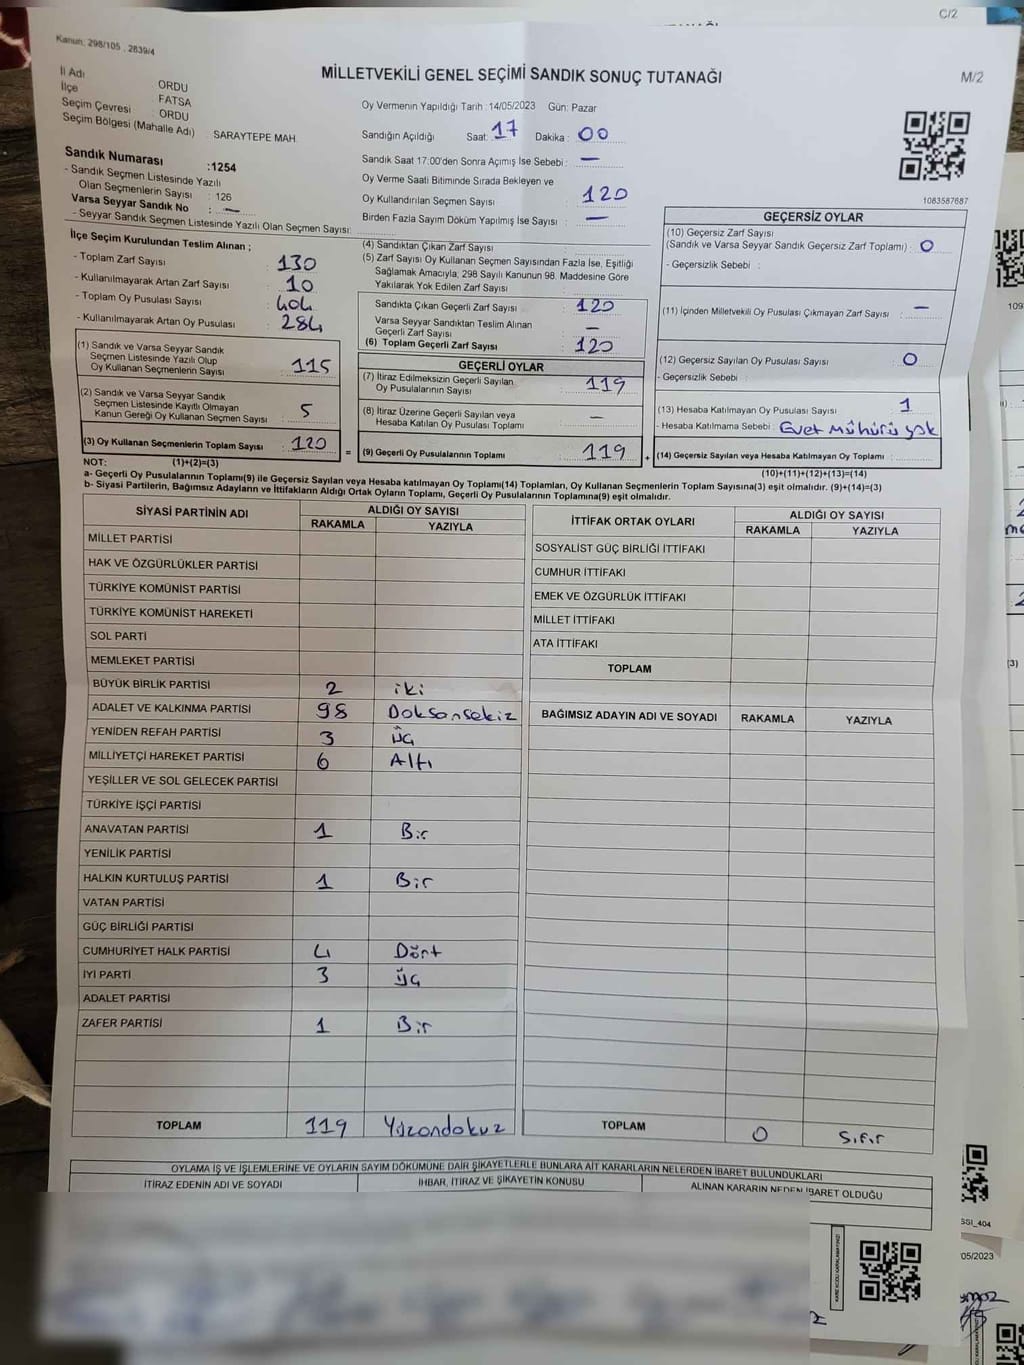 C/2
Kanun, 298/105 , 2839/4
MİLLETVEKİLİ GENEL SEÇİMİ SANDIK SONUÇ TUTANAĞI
M/2
İl Adı : ORDU
İlçe : FATSA
Seçim Çevresi : ORDU
Seçim Bölgesi (Mahalle Adı) : SARAYTEPE MAH.
Sandık Numarası :1254
- Sandık Seçmen Listesinde Yazılı
Olan Seçmenlerin Sayısı : 126
Varsa Seyyar Sandık No : —
- Seyyar Sandık Seçmen Listesinde Yazılı Olan Seçmen Sayısı:
Oy Vermenin Yapıldığı Tarih :14/05/2023 Gün: Pazar
Sandığın Açıldığı Saat: 17 Dakika : 00
Sandık Saat 17:00'den Sonra Açımış İse Sebebi : —
Oy Verme Saati Bitiminde Sırada Bekleyen ve
Oy Kullandırılan Seçmen Sayısı : 120
Birden Fazla Sayım Döküm Yapılmış İse Sayısı : —
1083587687
İlçe Seçim Kurulundan Teslim Alınan ;
- Toplam Zarf Sayısı : 130
- Kullanılmayarak Artan Zarf Sayısı : 10
- Toplam Oy Pusulası Sayısı : 404
- Kullanılmayarak Artan Oy Pusulası : 284
(1) Sandık ve Varsa Seyyar Sandık
Seçmen Listesinde Yazılı Olup
Oy Kullanan Seçmenlerin Sayısı : 115
(2) Sandık ve Varsa Seyyar Sandık
Seçmen Listesinde Kayıtlı Olmayan
Kanun Gereği Oy Kullanan Seçmen Sayısı : 5
(3) Oy Kullanan Seçmenlerin Toplam Sayısı : 120
(4) Sandıktan Çıkan Zarf Sayısı :
(5) Zarf Sayısı Oy Kullanan Seçmen Sayısından Fazla İse, Eşitliği
Sağlamak Amacıyla; 298 Sayılı Kanunun 98. Maddesine Göre
Yakılarak Yok Edilen Zarf Sayısı :
Sandıkta Çıkan Geçerli Zarf Sayısı : 120
Varsa Seyyar Sandıktan Teslim Alınan
Geçerli Zarf Sayısı : —
(6) Toplam Geçerli Zarf Sayısı : 120
GEÇERLİ OYLAR
(7) İtiraz Edilmeksizin Geçerli Sayılan
Oy Pusulalarının Sayısı : 119
(8) İtiraz Üzerine Geçerli Sayılan veya
Hesaba Katılan Oy Pusulası Toplamı : —
= (9) Geçerli Oy Pusulalarının Toplamı : 119 +
GEÇERSİZ OYLAR
(10) Geçersiz Zarf Sayısı
(Sandık ve Varsa Seyyar Sandık Geçersiz Zarf Toplamı) : 0
- Geçersizlik Sebebi :
(11) İçinden Milletvekili Oy Pusulası Çıkmayan Zarf Sayısı : —
(12) Geçersiz Sayılan Oy Pusulası Sayısı : 0
- Geçersizlik Sebebi :
(13) Hesaba Katılmayan Oy Pusulası Sayısı : 1
- Hesaba Katılmama Sebebi : Evet Mühürü yok
(14) Geçersiz Sayılan veya Hesaba Katılmayan Oy Toplamı :
NOT: (1)+(2)=(3)
(10)+(11)+(12)+(13)=(14)
a- Geçerli Oy Pusulalarının Toplamı(9) ile Geçersiz Sayılan veya Hesaba katılmayan Oy Toplamı(14) Toplamları, Oy Kullanan Seçmenlerin Toplam Sayısına(3) eşit olmalıdır. (9)+(14)=(3)
b- Siyasi Partilerin, Bağımsız Adayların ve İttifakların Aldığı Ortak Oyların Toplamı, Geçerli Oy Pusulalarının Toplamına(9) eşit olmalıdır.
SİYASİ PARTİNİN ADI ALDIĞI OY SAYISI
RAKAMLA YAZIYLA
MİLLET PARTİSİ
HAK VE ÖZGÜRLÜKLER PARTİSİ
TÜRKİYE KOMÜNİST PARTİSİ
TÜRKİYE KOMÜNİST HAREKETİ
SOL PARTİ
MEMLEKET PARTİSİ
BÜYÜK BİRLİK PARTİSİ 2 iki
ADALET VE KALKINMA PARTİSİ 98 Doksansekiz
YENİDEN REFAH PARTİSİ 3 üç
MİLLİYETÇİ HAREKET PARTİSİ 6 Altı
YEŞİLLER VE SOL GELECEK PARTİSİ
TÜRKİYE İŞÇİ PARTİSİ
ANAVATAN PARTİSİ 1 Bir
YENİLİK PARTİSİ
HALKIN KURTULUŞ PARTİSİ 1 Bir
VATAN PARTİSİ
GÜÇ BİRLİĞİ PARTİSİ
CUMHURİYET HALK PARTİSİ 4 Dört
İYİ PARTİ 3 üç
ADALET PARTİSİ
ZAFER PARTİSİ 1 Bir
TOPLAM 119 Yüzondokuz
İTTİFAK ORTAK OYLARI ALDIĞI OY SAYISI
RAKAMLA YAZIYLA
SOSYALİST GÜÇ BİRLİĞİ İTTİFAKI
CUMHUR İTTİFAKI
EMEK VE ÖZGÜRLÜK İTTİFAKI
MİLLET İTTİFAKI
ATA İTTİFAKI
TOPLAM
BAĞIMSIZ ADAYIN ADI VE SOYADI RAKAMLA YAZIYLA
TOPLAM 0 Sıfır
OYLAMA İŞ VE İŞLEMLERİNE VE OYLARIN SAYIM DÖKÜMÜNE DAİR ŞİKAYETLERLE BUNLARA AİT KARARLARIN NELERDEN İBARET BULUNDUKLARI
İTİRAZ EDENİN ADI VE SOYADI İHBAR, İTİRAZ VE ŞİKAYETİN KONUSU ALINAN KARARIN NEDEN İBARET OLDUĞU
SSI_404
05/2023